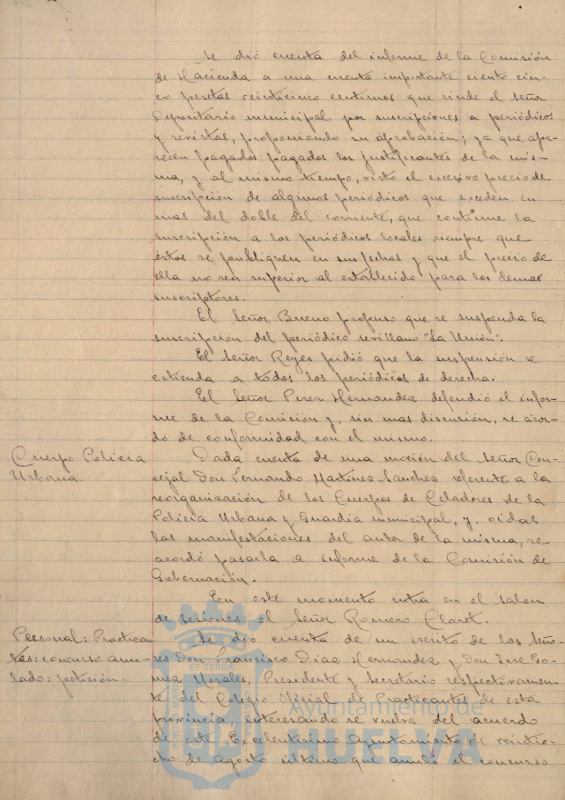 Se dió cuenta del informe de la Comisión
de Hacienda a una cuenta importante ciento cin-
co pesetas veinticinco centimos que rinde el Señor
Depositario municipal por suscripciones a periódicos
y revistas, proponiendo su aprobación; ya que apa-
recen pagados pagados los justificantes de la mis-
ma, y al mismo tiempo, visto el excesivo precio de
suscripción de algunos periódicos que exceden en
mas del doble del corriente, que continue la
suscripción a los periódicos locales siempre que
éstos se publiquen en sus fechas y que el precio de
ella no sea superior al establecido para los demas
suscriptores.
El Señor Bueno propuso que se suspenda la
suscripción del periódico sevillano "La Unión".
El Señor Reyes pidió que la suspensión se
extienda a todos los periódicos de derecha.
El Señor Perez Hernandez defendió el infor-
me de la Comisión y, sin mas discusión, se acor-
dó de conformidad con el mismo.
Cuerpo Policia
Urbana.
Dada cuenta de una moción del Señor Con-
cejal Don Fernando Martinez Sanchez referente a la
reorganización de los Cuerpos de Celadores de la
Policia Urbana y Guardia municipal, y, oidas
las manifestaciones del autor de la misma, se
acordó pasarla a informe de la Comisión de
Gobernación.
En este momento entra en el salon
de sesiones el Señor Romero Claret.
Personal: Practican
tes: concurso anu-
lado: petición.
Se dió cuenta de un escrito de los Seño-
res Don Francisco Diaz Hernandez y Don Jose Go-
mez Morales, Presidente y Secretario respectivamen-
te del Colegio Oficial de Practicantes de esta
provincia interesando se vuelva del acuerdo
de este Excelentisimo Ayuntamiento de veintio-
cho de agosto último que anuló el concurso
Ayuntamiento de
HUELVA